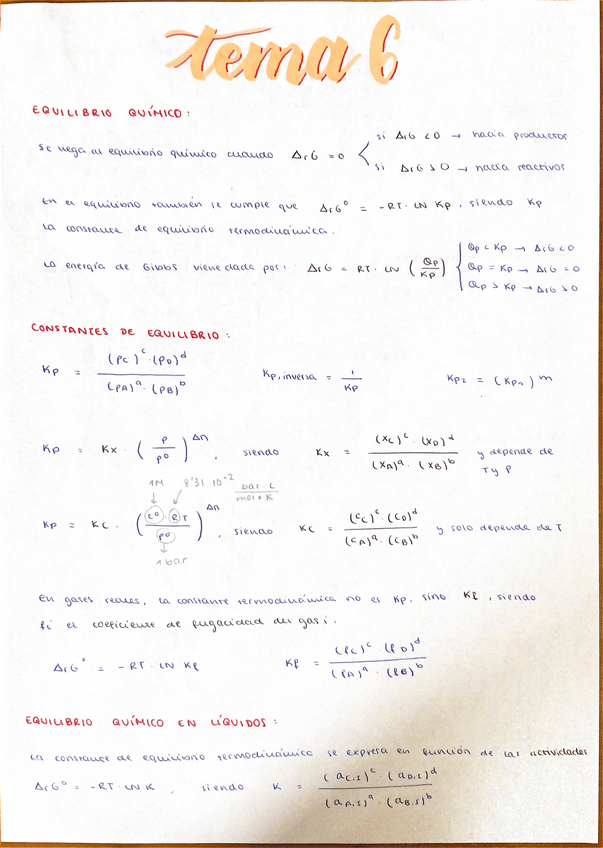 tema 6
EQUILIBRIO QUÍMICO:
si ΔrG < 0 → hacia productos
Se llega al equilibrio químico cuando ΔrG = 0
si ΔrG > 0 → hacia reactivos
En el equilibrio también se cumple que ΔrG° = -RT · LN Kp, siendo Kp
la constante de equilibrio termodinámica.
Qp < Kp → ΔrG < 0
La energía de Gibbs viene dada por: ΔrG = RT · LN (Qp/Kp)
Qp = Kp → ΔrG = 0
Qp > Kp → ΔrG > 0
CONSTANTES DE EQUILIBRIO:
Kp = (pC)^c · (pD)^d / (pA)^a · (pB)^b Kp, inversa = 1/Kp Kp2 = (Kp1)^m
Kp = Kx · (p/p°)^Δn, siendo Kx = (xC)^c · (xD)^d / (xA)^a · (xB)^b y depende de
T y P
1M 8'31 10^-2 bar L / mol · K
Kp = Kc · (c° · RT / p°)^Δn, siendo Kc = (cC)^c · (cD)^d / (cA)^a · (cB)^b y solo depende de T
1 bar
En gases reales, la constante termodinámica no es Kp, sino Kf, siendo
fi el coeficiente de fugacidad del gas i:
ΔrG° = -RT · LN Kf Kf = (fC)^c · (fD)^d / (fA)^a · (fB)^b
EQUILIBRIO QUÍMICO EN LÍQUIDOS:
La constante de equilibrio termodinámico se expresa en función de las actividades
ΔrG° = -RT · LN K, siendo K = (aC,s)^c · (aD,s)^d / (aA,s)^a · (aB,s)^b